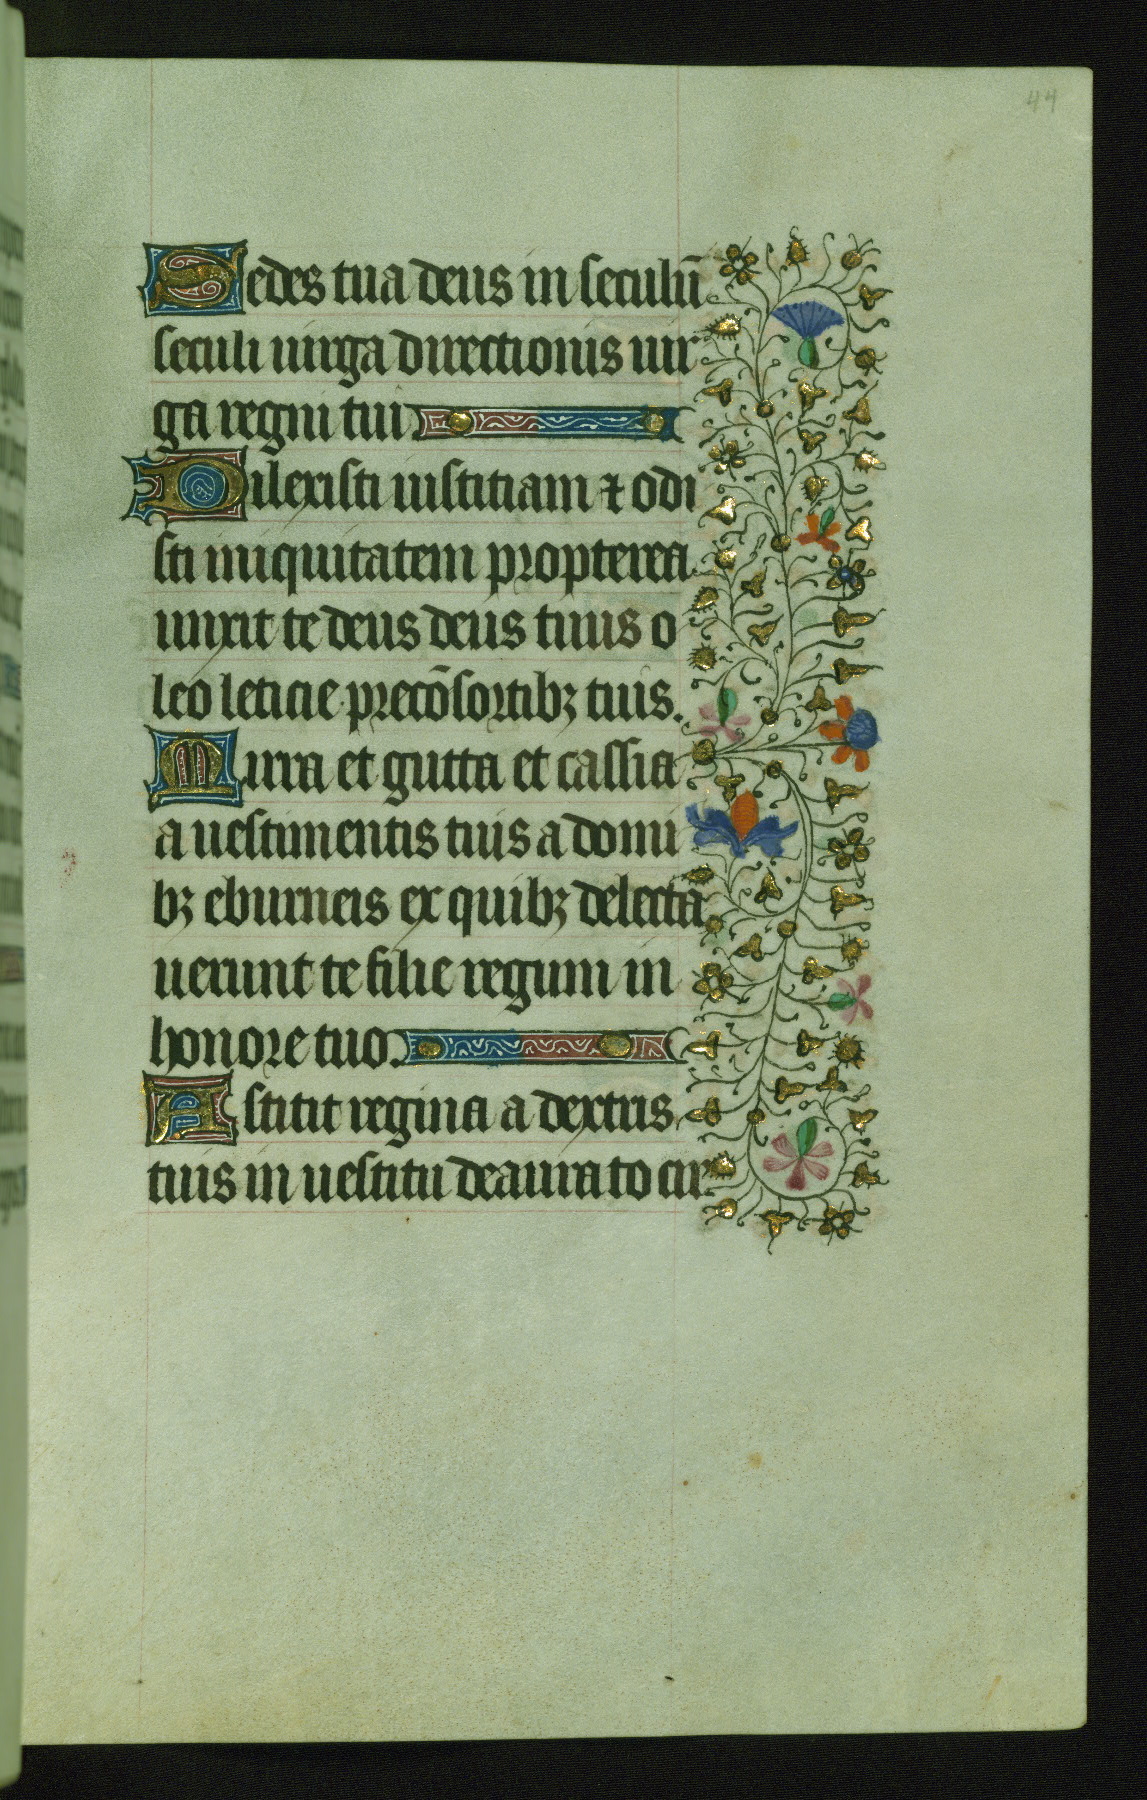 44
Sedes tua deus in seculū
seculi uirga directionis uir
ga regni tui
Dilexisti iustitiam ⁊ odi
sti iniquitatem propterea
unxit te deus deus tuus o
leo leticie precōsortibꝫ tuis.
Mirra et gutta et cassia
a uestimentis tuis a domi
bꝫ eburneis ex quibꝫ delecta
uerunt te filie regum in
honore tuo
Astitit regina a dextris
tuis in uestitu deaurato cir